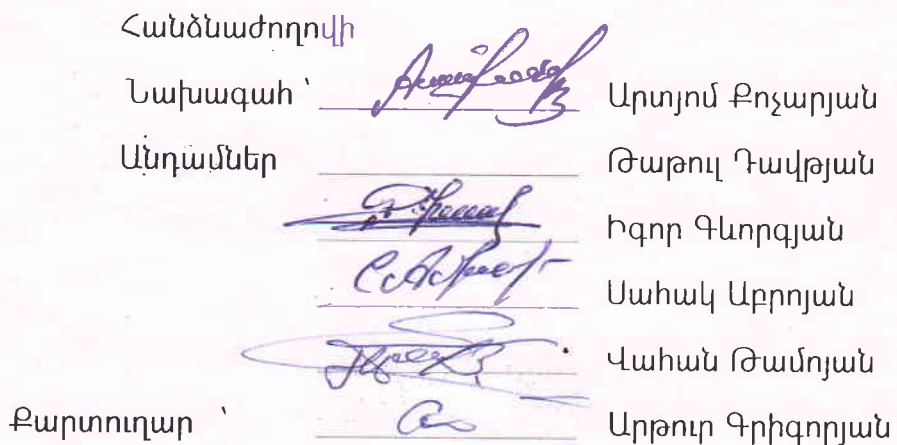 Հանձնաժողովի
Նախագահ ՝ Արտյոմ Քոչարյան
Անդամներ Թաթուլ Դավթյան
Իգոր Գևորգյան
Սահակ Աբրոյան
Վահան Թամոյան
Քարտուղար ՝ Արթուր Գրիգորյան